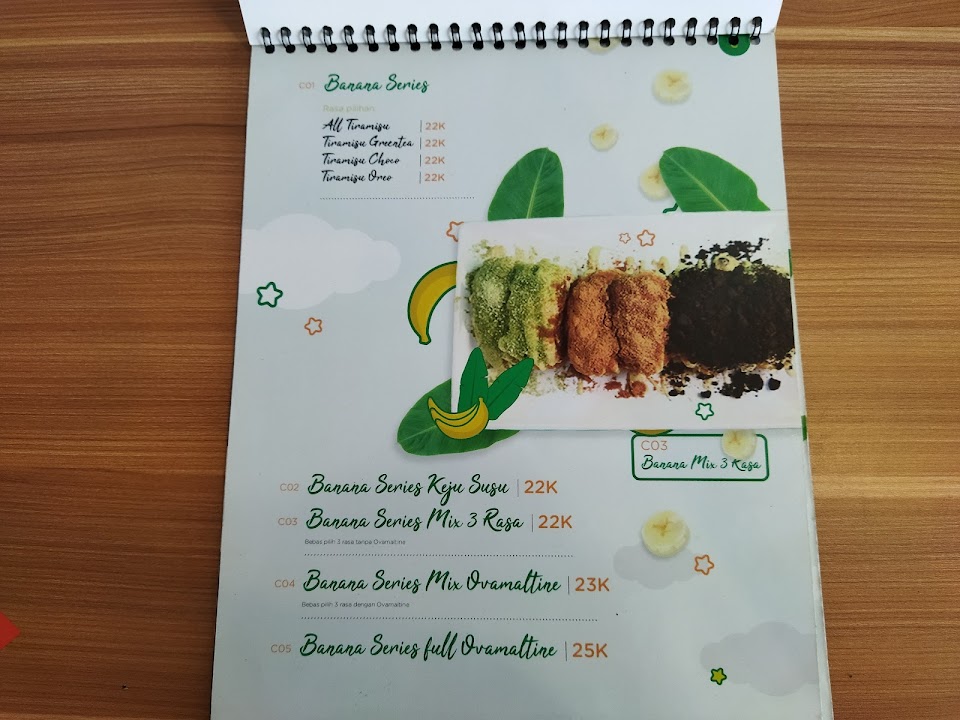 C01 Banana Series
Rasa pilihan:
All Tiramisu | 22K
Tiramisu Greentea | 22K
Tiramisu Choco | 22K
Tiramisu Oreo | 22K
C03
Banana Mix 3 Rasa
C02 Banana Series Keju Susu | 22K
C03 Banana Series Mix 3 Rasa | 22K
Bebas pilih 3 rasa tanpa Ovamaltine
C04 Banana Series Mix Ovamaltine | 23K
Bebas pilih 3 rasa dengan Ovamaltine
C05 Banana Series full Ovamaltine | 25K